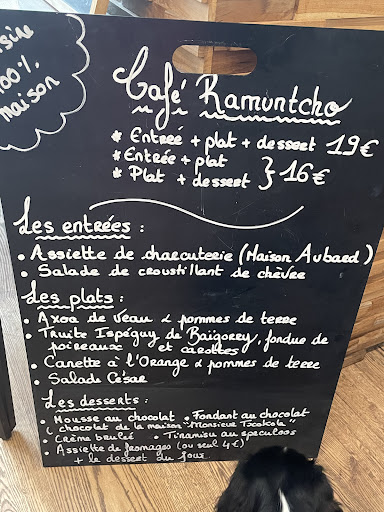 sine
100%
maison
Café Ramuntcho
* Entreé + plat + dessert 19€
* Entrée + plat
* Plat + dessert } 16€
Les entrées :
• Assiette de charcuterie (Maison Aubard)
• Salade de croustillant de chèvre
Les plats :
• Axoa de veau & pommes de terre
• Truite Ispéguy de Baïgorry, fondue de
poireaux et carottes
• Canette à l'Orange & pommes de terre
• Salade César
Les desserts :
• Mousse au chocolat • Fondant au chocolat
( chocolat de la maison "Monsieur Txokola")
• Crème bruleé • Tiramisu au speculoos
• Assiette de fromages (ou seul 4€)
+ le dessert du jour